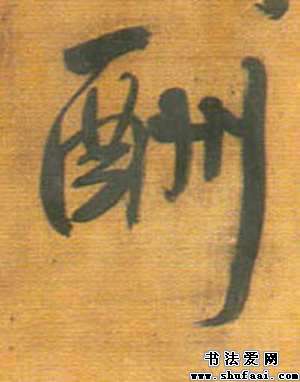 酬
书法爱网
www.shufaai.com